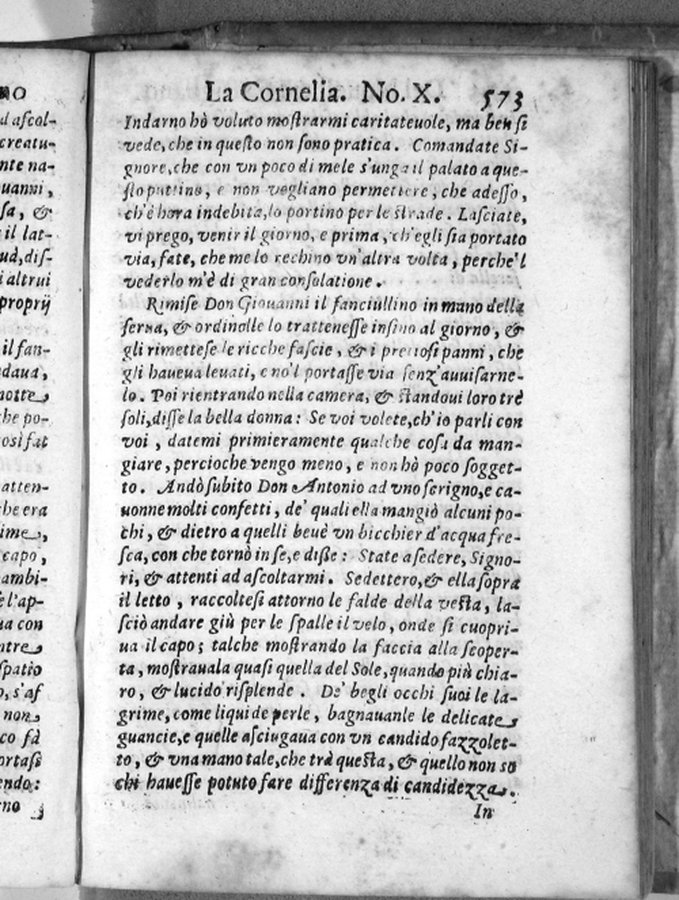 no
La Cornelia. No. X. 573
d aſcol-
creatu-
nte na-
uanni,
ſa, &
il lat-
ud, diſ-
i altrui
proprij
il fan-
daua,
notte,
he po-
osì fat
atten-
he era
ime,
capo,
ambi-
e l'ap-
ua con
ntre
ſpatio
o, s'aſ
non
co fà
ortaſi
endo:
rno
Indarno hò voluto moſtrarmi caritateuole, ma ben ſi
vede, che in queſto non ſono pratica. Comandate Si-
gnore, che con vn poco di mele s'unga il palato a que-
ſto puttino, e non vogliano permettere, che adeſſo,
ch'è hora indebita, lo portino per le ſtrade. Laſciate,
vi prego, venir il giorno, e prima, ch'egli ſia portato
via, fate, che me lo rechino vn'altra volta, perche'l
vederlo m'è di gran conſolatione.
Rimiſe Don Giouanni il fanciullino in mano della
ſerua, & ordinolle lo tratteneſſe inſino al giorno, &
gli rimetteſe le ricche faſcie, & i pretioſi panni, che
gli haueua leuati, e no'l portaſſe via ſenz'auuiſarne-
lo. Poi rientrando nella camera, & ſtandoui loro trè
ſoli, diſſe la bella donna: Se voi volete, ch'io parli con
voi, datemi primieramente qualche coſa da man-
giare, percioche vengo meno, e non hò poco ſogget-
to. Andò ſubito Don Antonio ad vno ſcrigno, e ca-
uonne molti confetti, de' quali ella mangiò alcuni po-
chi, & dietro a quelli beuè vn bicchier d'acqua fre-
ſca, con che tornò in ſe, e diſſe: State a ſedere, Signo-
ri, & attenti ad aſcoltarmi. Sedettero, & ella ſopra
il letto, raccolteſi attorno le falde della veſta, la-
ſciò andare giù per le ſpalle il velo, onde ſi cuopri-
ua il capo; talche moſtrando la faccia alla ſcoper-
ta, moſtrauala quaſi quella del Sole, quando più chia-
ro, & lucido riſplende. De' begli occhi ſuoi le la-
grime, come liquide perle, bagnauanle le delicate
guancie, e quelle aſciugaua con vn candido fazzolet-
to, & vna mano tale, che trà queſta, & quello non so
chi haueſſe potuto fare differenza di candidezza.
In